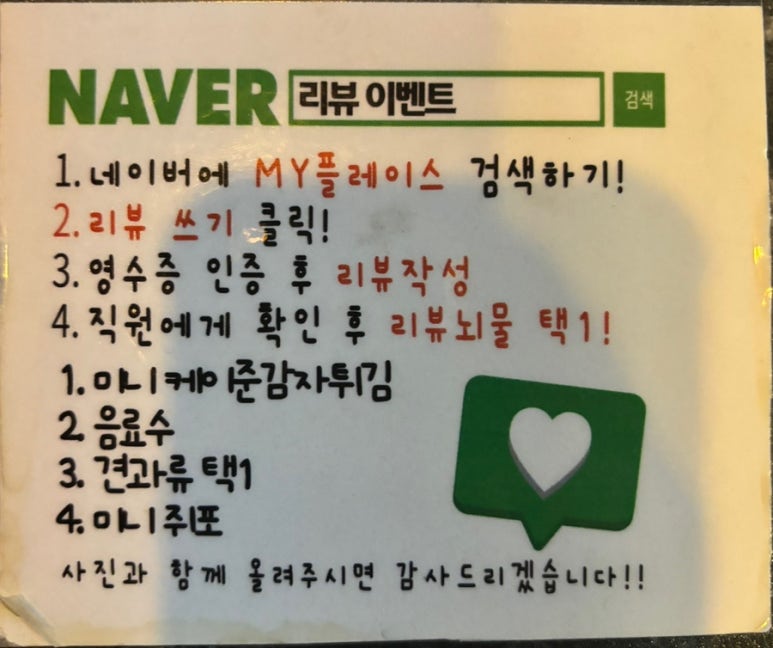 NAVER 리뷰 이벤트 검색
1. 네이버에 MY플레이스 검색하기!
2. 리뷰 쓰기 클릭!
3. 영수증 인증 후 리뷰작성
4. 직원에게 확인 후 리뷰뇌물 택1!
1. 미니케이준감자튀김
2. 음료수
3. 견과류 택1
4. 미니쥐포
사진과 함께 올려주시면 감사드리겠습니다!!